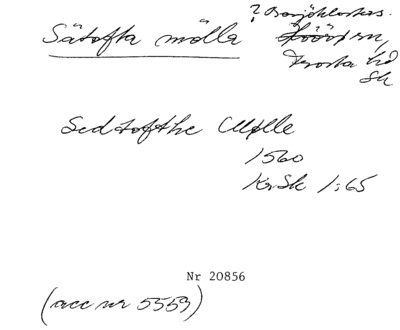 Sätofta mölla
? Bosjökloster.
Höörs sn,
Frosta hd
Sk
Sedtofthe Mølle
1560
KrSk 1:65
Nr 20856
(acc nr 5559)